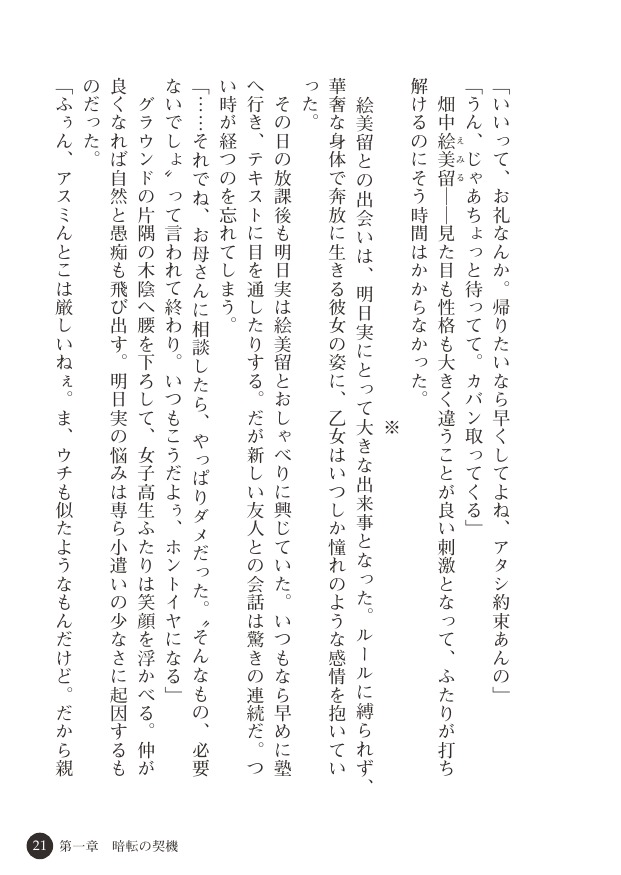 「いいって、お礼なんか。帰りたいなら早くしてよね、アタシ約束あんの」
「うん、じゃあちょっと待ってて。カバン取ってくる」
　畑中絵美留――見た目も性格も大きく違うことが良い刺激となって、ふたりが打ち
えみる
解けるのにそう時間はかからなかった。
※
　絵美留との出会いは、明日実にとって大きな出来事となった。ルールに縛られず、
華奢な身体で奔放に生きる彼女の姿に、乙女はいつしか憧れのような感情を抱いてい
った。
　その日の放課後も明日実は絵美留とおしゃべりに興じていた。いつもなら早めに塾
へ行き、テキストに目を通したりする。だが新しい友人との会話は驚きの連続だ。つ
い時が経つのを忘れてしまう。
「……それでね、お母さんに相談したら、やっぱりダメだった。〝そんなもの、必要
ないでしょ〟って言われて終わり。いつもこうだよぅ、ホントイヤになる」
　グラウンドの片隅の木陰へ腰を下ろして、女子高生ふたりは笑顔を浮かべる。仲が
良くなれば自然と愚痴も飛び出す。明日実の悩みは専ら小遣いの少なさに起因するも
のだった。
「ふぅん、アスミんとこは厳しいねぇ。ま、ウチも似たようなもんだけど。だから親
21 第一章　暗転の契機